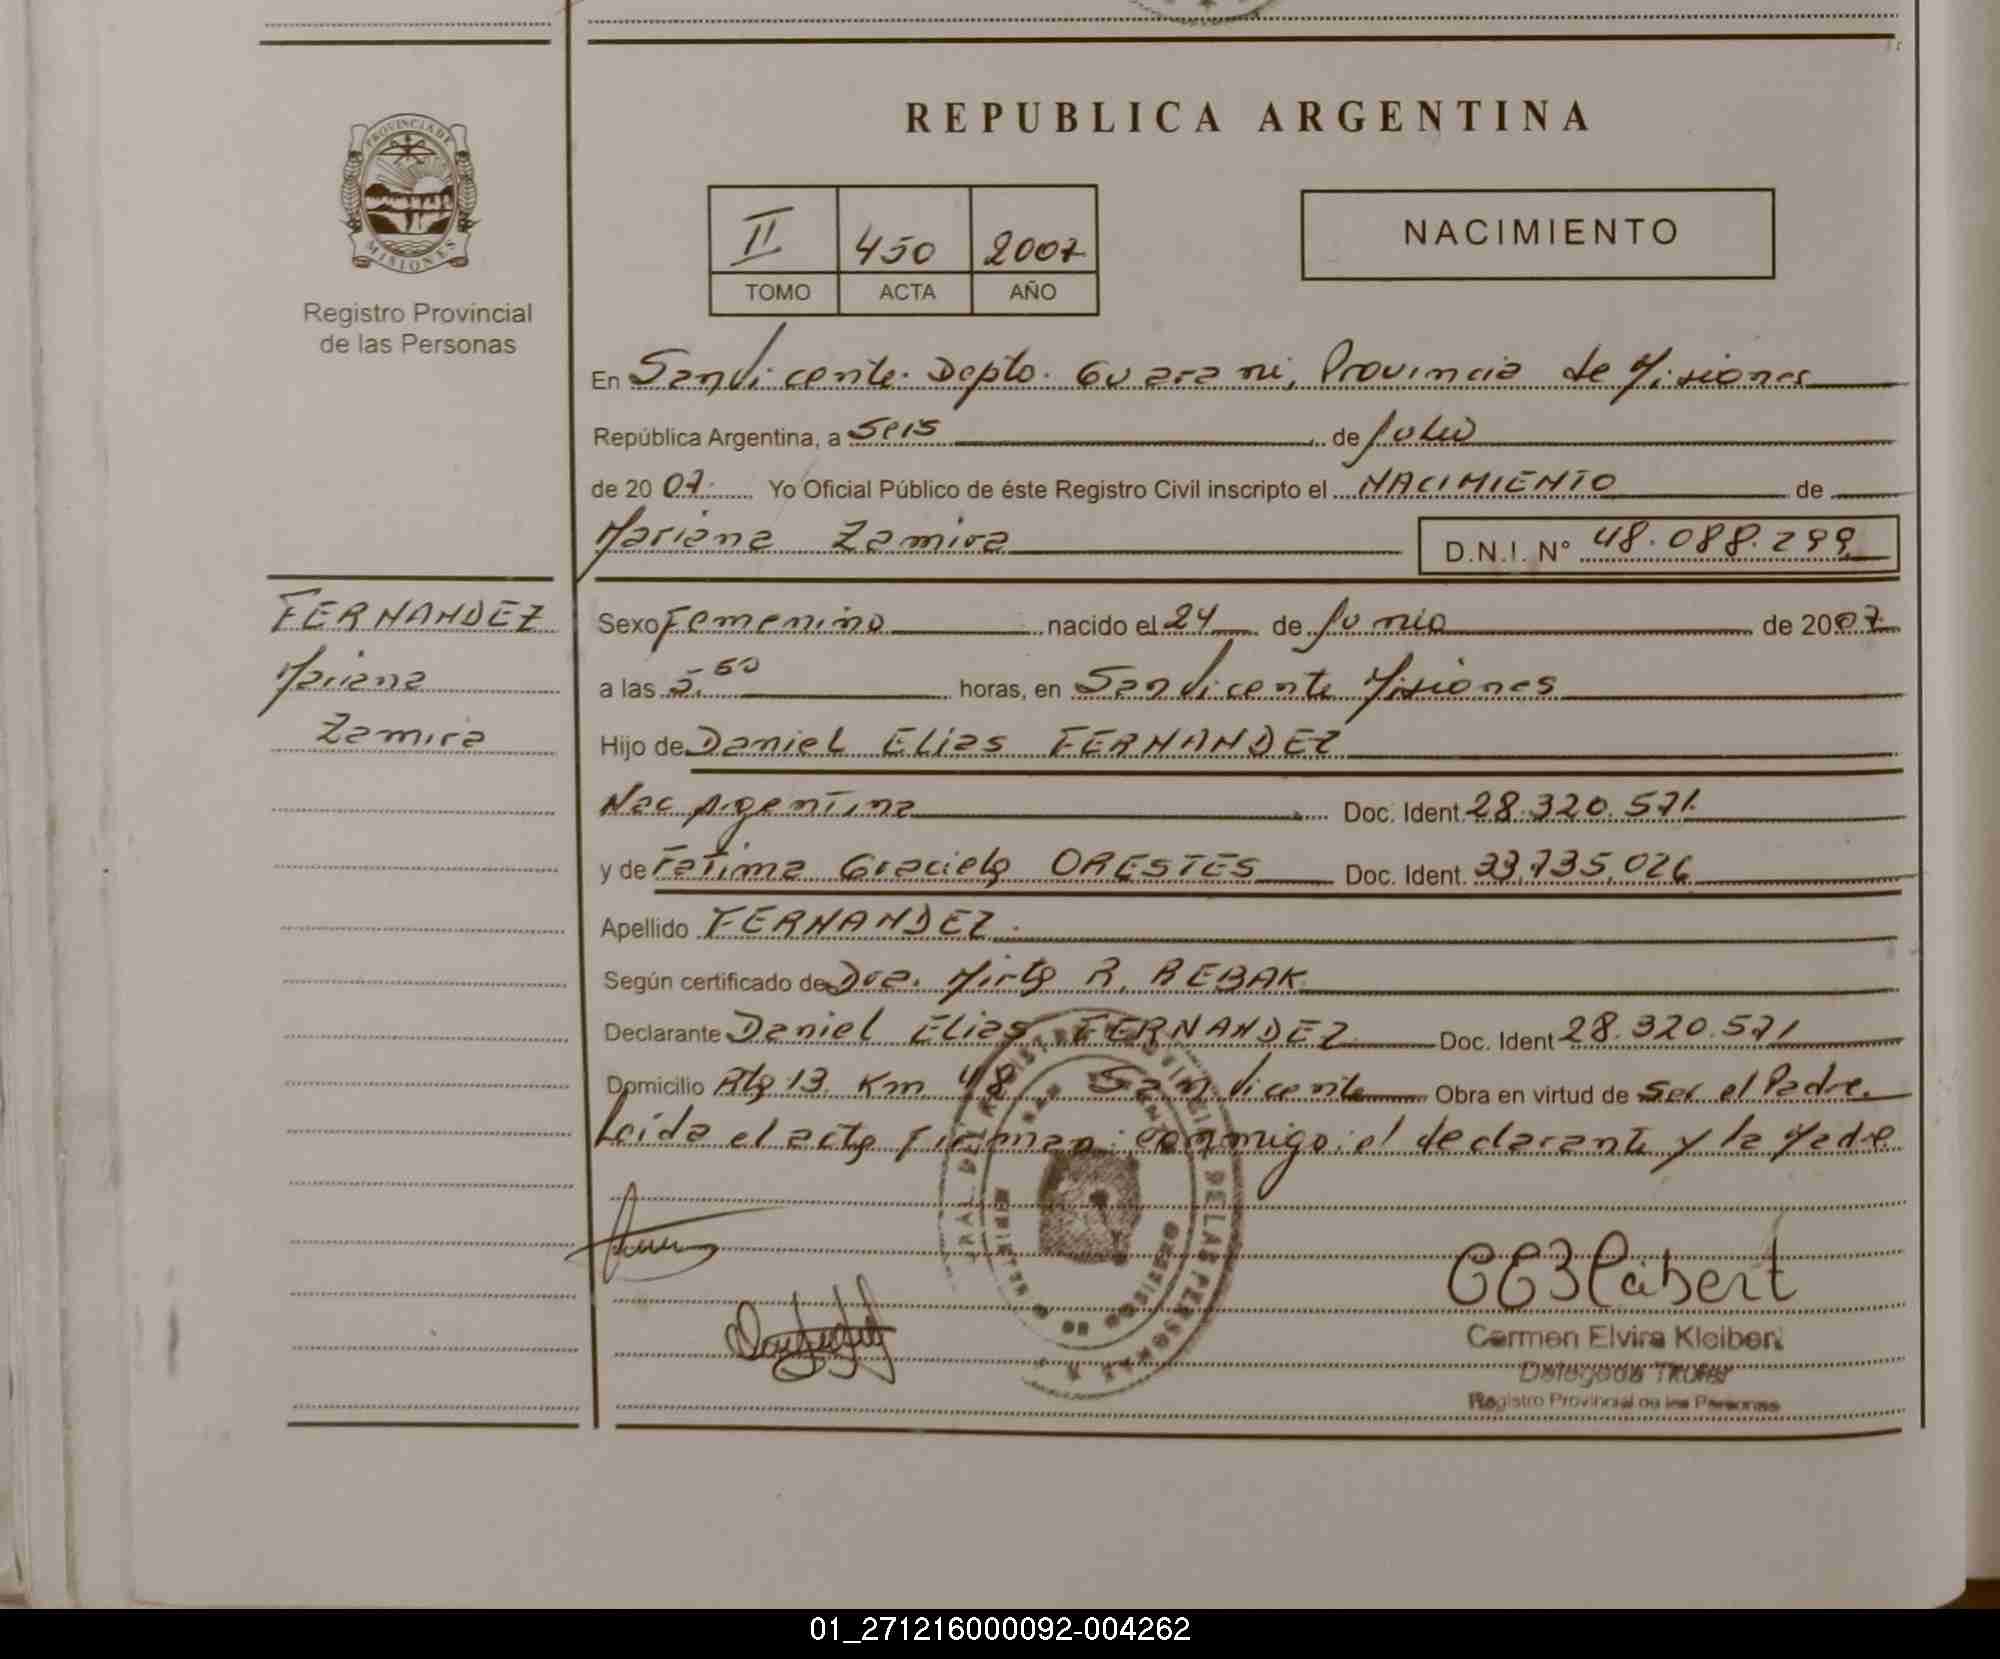 REPUBLICA ARGENTINA
PROVINCIA DE
MISIONES
Registro Provincial
de las Personas
II 450 2007
TOMO ACTA AÑO
NACIMIENTO
En San Vicente. Depto. Guarani, Provincia de Misiones
República Argentina, a Seis de Julio
de 2007. Yo Oficial Público de éste Registro Civil inscripto el NACIMIENTO de
Mariana Zamira D.N.I. N° 48.088.299
FERNANDEZ
Mariana
Zamira
Sexo Femenino nacido el 24 de Junio de 2007
a las 5.50 horas, en San Vicente Misiones
Hijo de Daniel Elias FERNANDEZ
Nac Argentina Doc. Ident. 28.320.571.
y de Fatima Graciela ORESTES Doc. Ident. 33.735.026
Apellido FERNANDEZ.
Según certificado de Dra. Mirta R. REBAK
Declarante Daniel Elias FERNANDEZ Doc. Ident 28.320.571
Domicilio Rta 13. Km 48 San Vicente Obra en virtud de ser el Padre.
Leida el acta Firman conmigo: el declarante y la Madre
DE LAS PERSONAS
Carmen Elvira Kleibert
Delegada Titular
Registro Provincial de las Personas
01_271216000092-004262